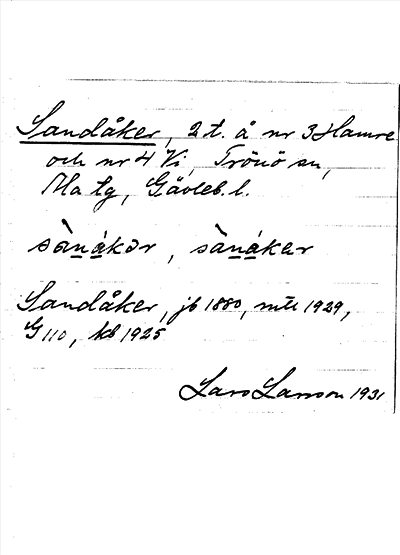 Sandåker, 2 t. å nr 3 Hamre
och nr 4 Vi, Trönö sn,
Ha tg, Gävleb. l.
sànákər, sànákər
Sandåker, jb 1880, mtl 1929,
G 110, kb 1925
Lars Larsson 1931